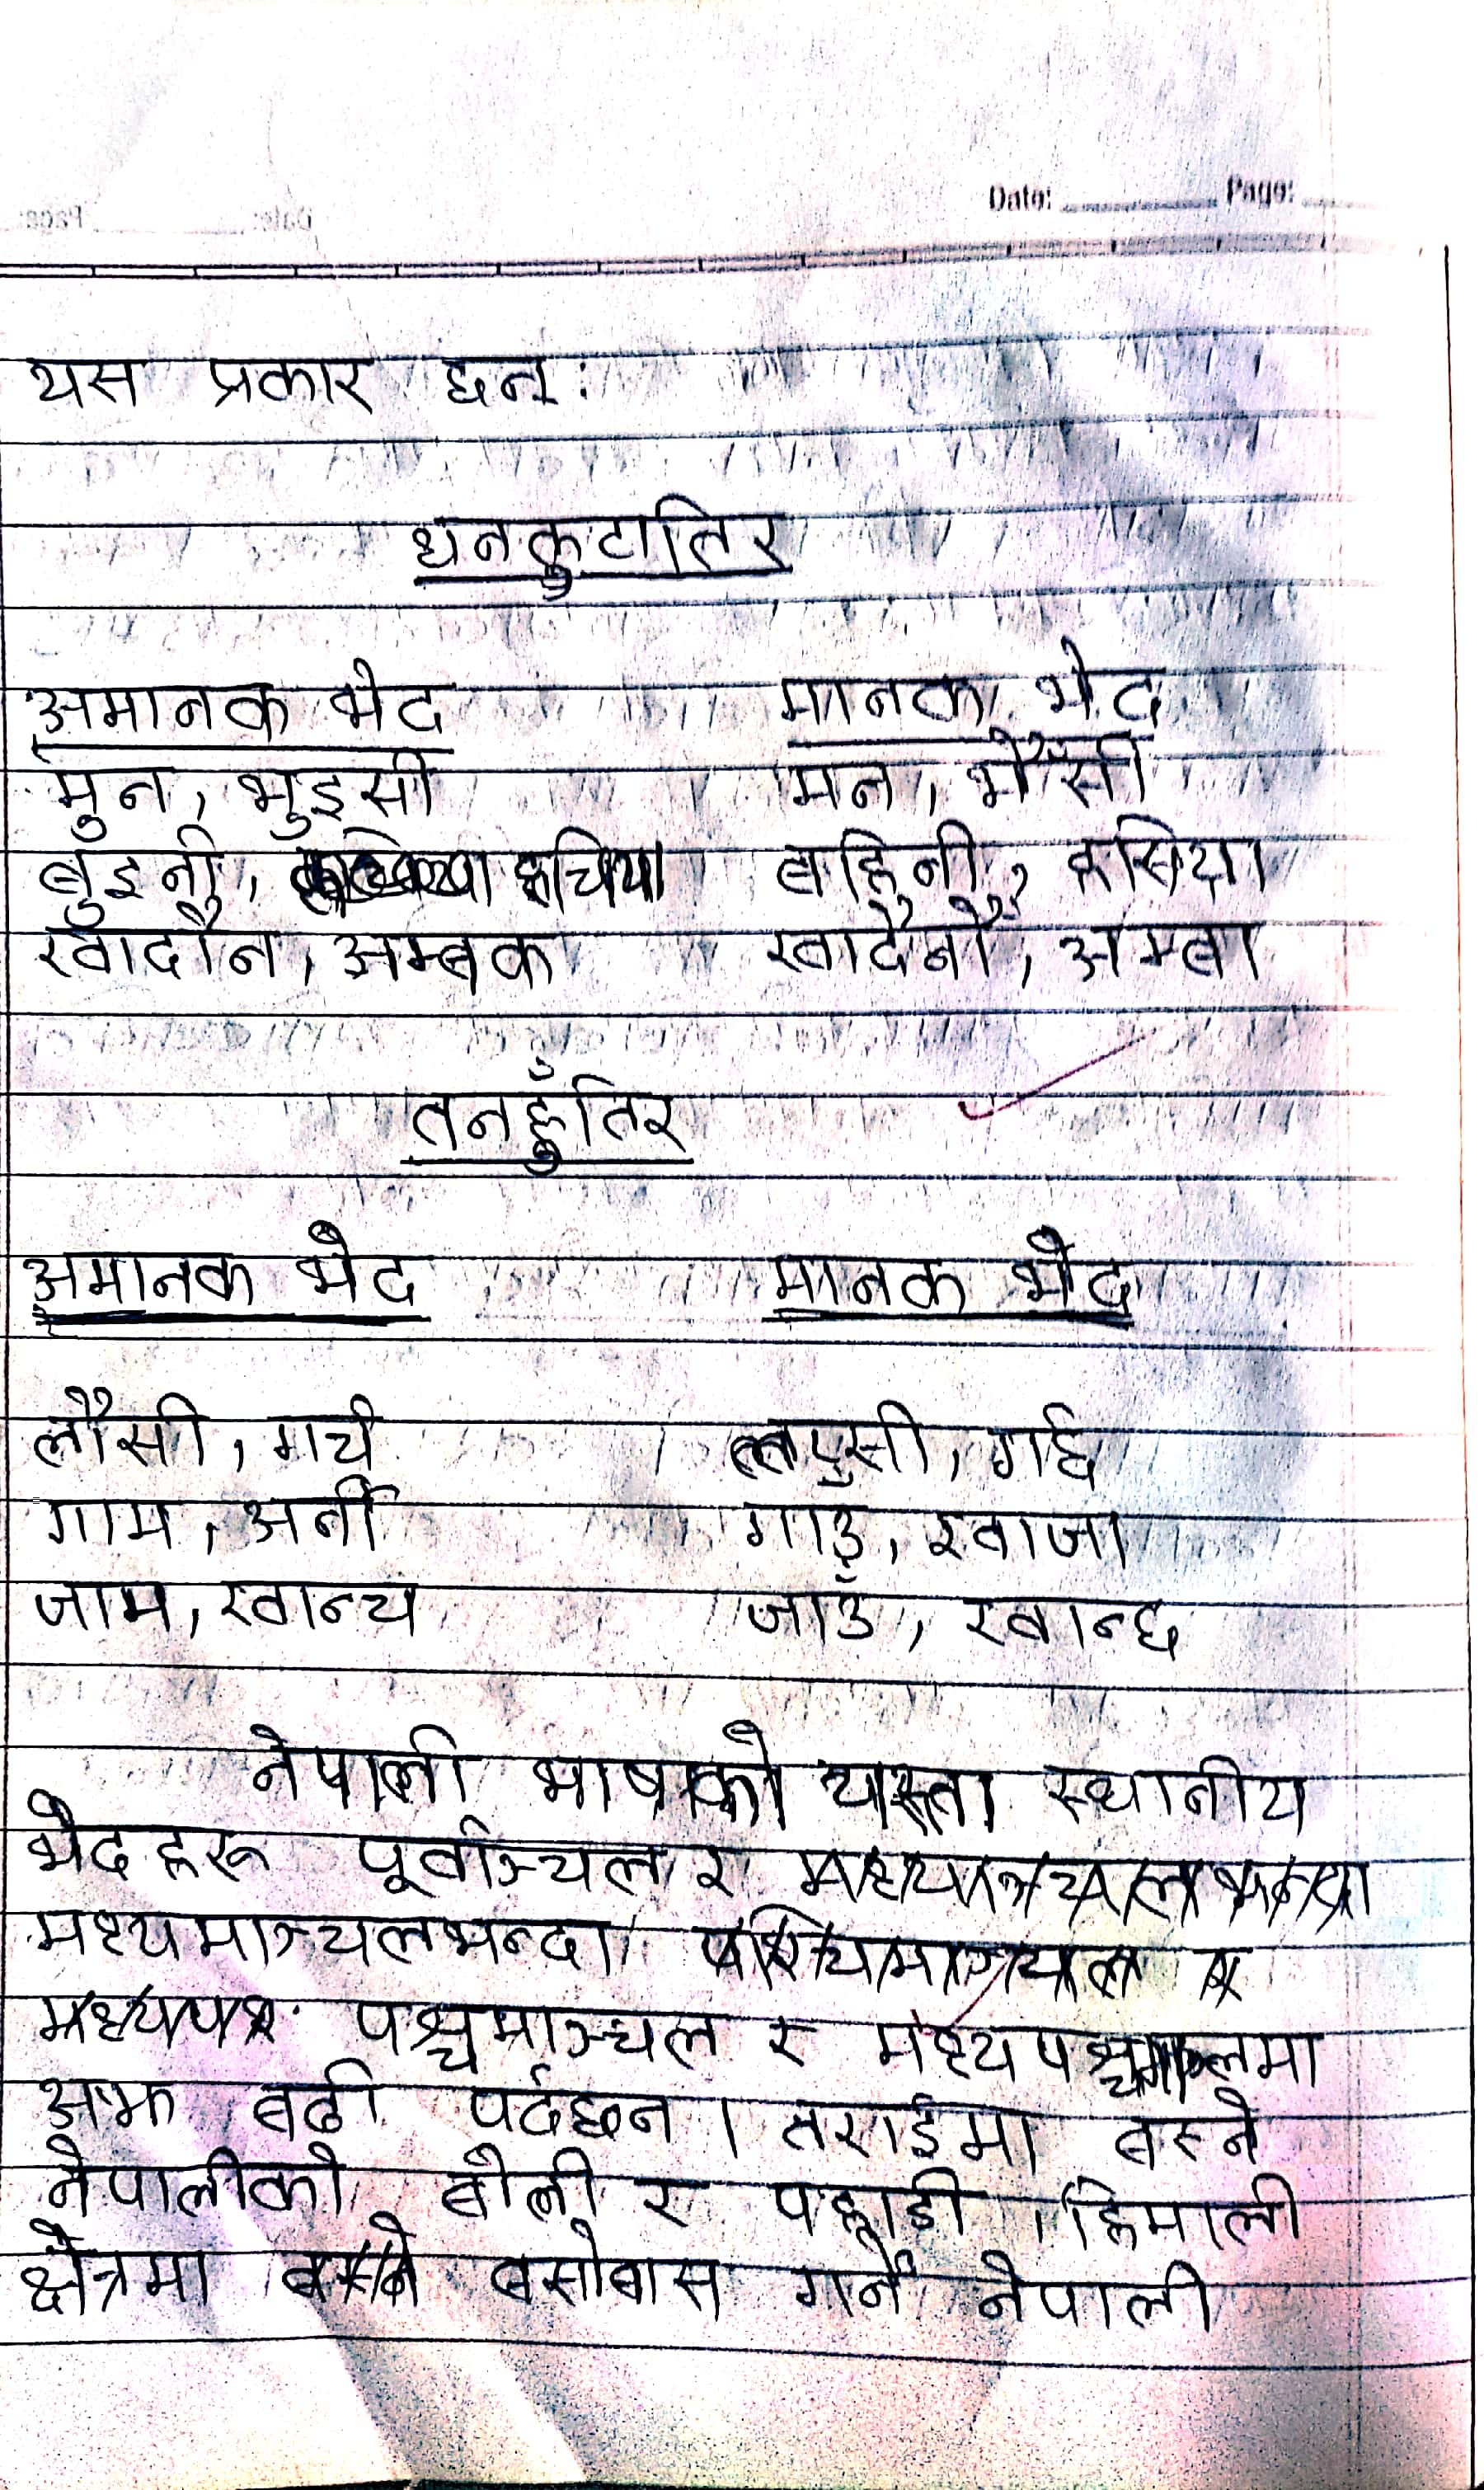 Date: Page:
यस प्रकार छन् :
धनकुटातिर
अमानक भेद मानक भेद
मुन, भुइसी मन, भैँसी
बुइनी, हाचिया बहिनी, हासिया
खाँदौन, अम्बक खाँदैनौँ, अम्बा
तनहुँतिर
अमानक भेद मानक भेद
लौसी, गर्च लएसी, गर्छ
गाम, अर्नी गाउँ, खाजा
जाम, खान्च जाउँ, खान्छ
नेपाली भाषाको यास्ता स्थानीय
भेदहरू पूर्वाञ्चल र
मध्यमाञ्चलभन्दा
पश्चिमाञ्चल र मध्यपश्चिमाञ्चलमा
अझ बढी पर्दछन । तराईमा बस्ने
नेपालीको बोली र पहाडी, हिमाली
क्षेत्रमा बसोबास गर्ने नेपाली